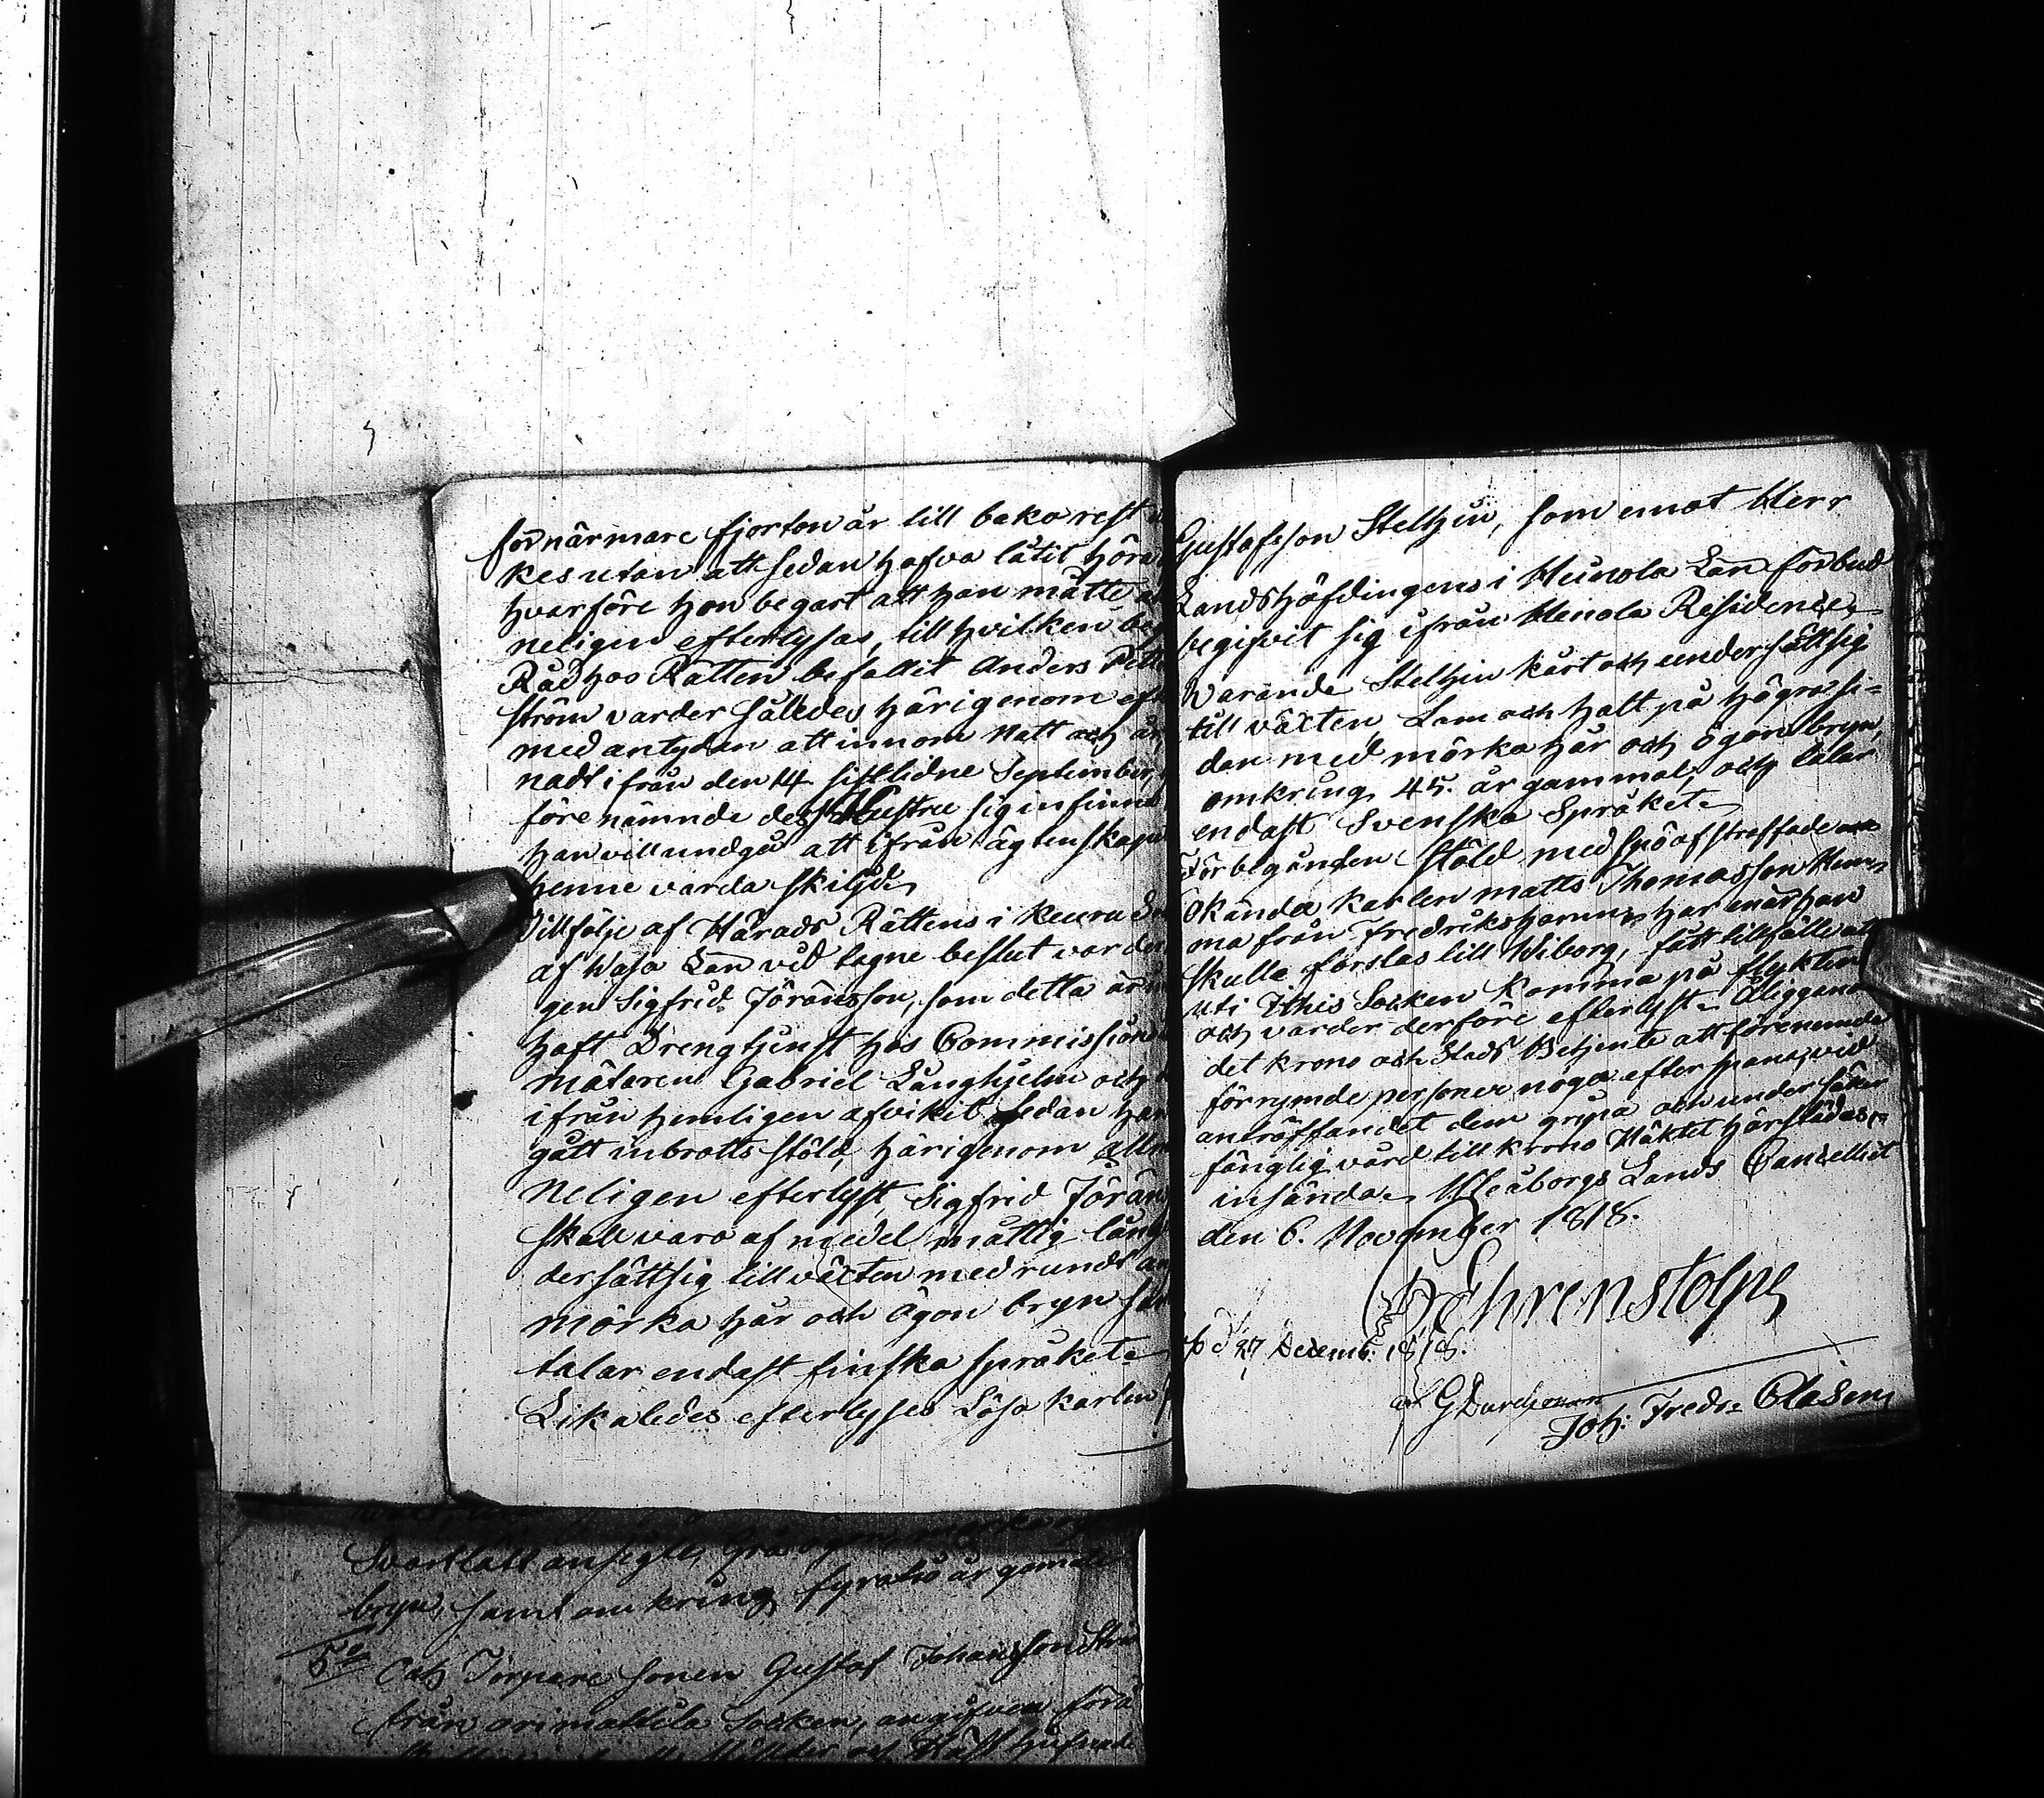 förnärmare fjorton år till baka rest
kes utan att sedan hafva låtit höra
hvarföre hon begärt att han måtte
neligen efterlysas, till hvilken
Rådhus Rätten befallit Anders
ström varder således härigenom eft
med antydan att innom Natt och år,
nadt ifrån den 14 sistlidne September,
före nämnde dess Hustru sig infinna
han vill undgå att ifrån ägtenskapet
henne varda skiljd.
Till följe af Härads Rättens i Keuru
af Wasa Län vid tagne beslut varder
gen Sigfrid Jöransson, som detta år
haft Drengtjenst hos Commissions
mätaren Gabriel Långhjelm och
ifrån hemligen afvikit sedan han
gått inbrotts stöld, härigenom allm
neligen efterlyst, Sigfrid Jörans
skall vara af medel måttig läng
dersättsig till växten med rundt an
mörka hår och ögon bryn sa
talar endast finska språket.
Likaledes efterlyses Lösa karlen
Gustafsson Steltzin, som emot Herr
Landshöfdingens i Heinola Län förbud
begifvit sig ifrån Heinola Residence,
Varande Steltzin kårt och undersättsig
till växten, Lam och halt på högra si-
dan med mörka hår och ögonbryn,
omkring 45. år gammal, och talar
endast Svenska Språket.
För begången Stöld med Spö afstraffade
Okände karlen Matts Thomasson Hem-
ma från Fredrikshamn, har enär han
skulle förslas till Wiborg, fått tillfälle att
uti Ithis Socken komma på flykten
och varder derföre efterlyst. Åliggande
det krono och Stads Betjente att förenemde
förrymde personer noga efter spana, vid
anträffandet dem gripa och under säker
fånglig vård till krono Häktet härstädes
insända. Uleåborgs Lands Cancellie
den 6. November 1818.
Ehrenstolpe
d 27 Decemb. 1818.
Joh: Fredr: Clasen
Svartlätt ansigte, Grå ögon,
bryn, samt omkring fyratio år gammal
5º
Och Torpare sonen Gustaf Johansson
från Orimattila Socken, angifven för